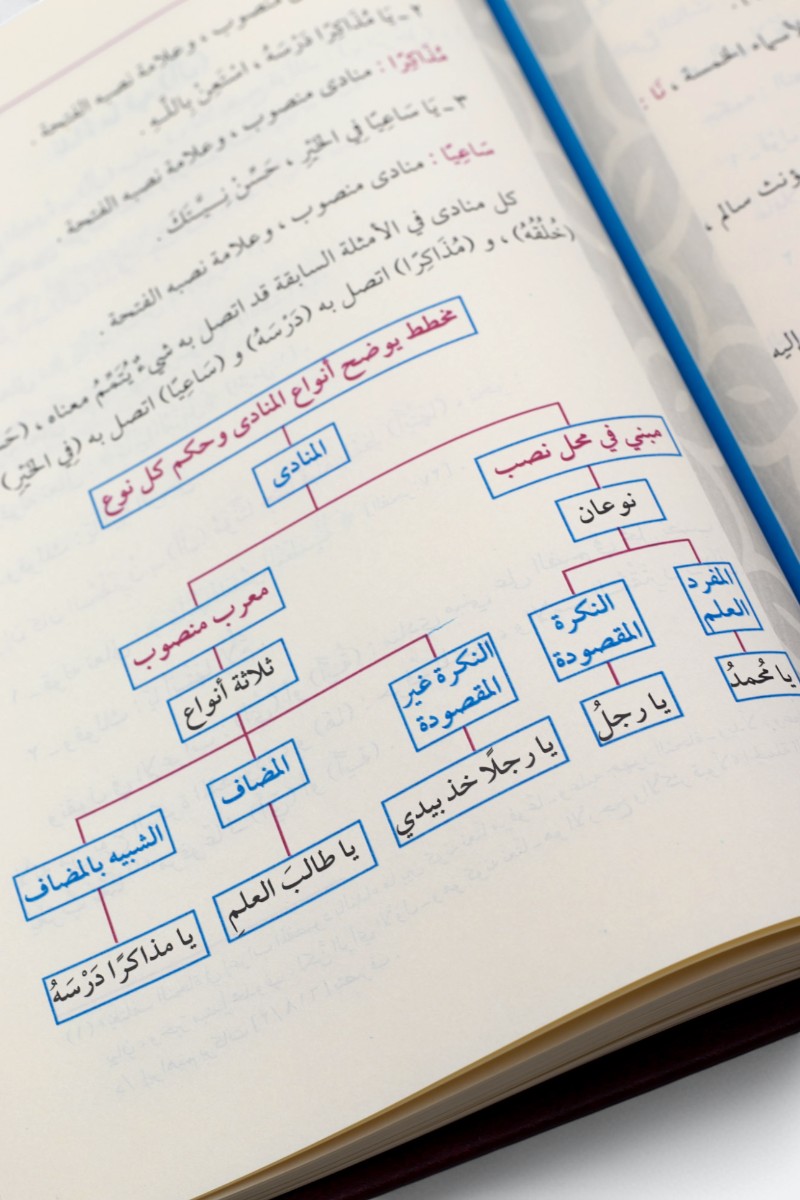 منصوب ، وعلامة نصبه الفتحة .
٢ ـ يَا مُذَاكِرًا دَرْسَهُ ، اسْتَعِنْ بِاللهِ .
مُذَاكِرًا : منادى منصوب ، وعلامة نصبه الفتحة .
٣ ـ يَا سَاعِيًا فِي الخَيْرِ ، حَسِّنْ نِيَّتَكَ .
سَاعِيًا : منادى منصوب ، وعلامة نصبه الفتحة .
كل منادى في الأمثلة السابقة قد اتصل به شيءٌ يُتَمِّمُ معناه ،
(خُلُقُهُ) ، و (مُذَاكِرًا) اتصل به (دَرْسَهُ) و (سَاعِيًا) اتصل به (فِي الخَيْرِ)
مخطط يوضح أنواع المنادى وحكم كل نوع
المنادى
مبني في محل نصب
نوعان
المفرد
العلم
يا مُحمدُ
النكرة
المقصودة
يا رجلُ
معرب منصوب
ثلاثة أنواع
النكرة غير
المقصودة
يا رجلًا خذ بيدي
المضاف
يا طالبَ العلمِ
الشبيه بالمضاف
يا مذاكرًا دَرْسَهُ
الأسماء الخمسة ، نَا :
مؤنث سالم ،
إليه